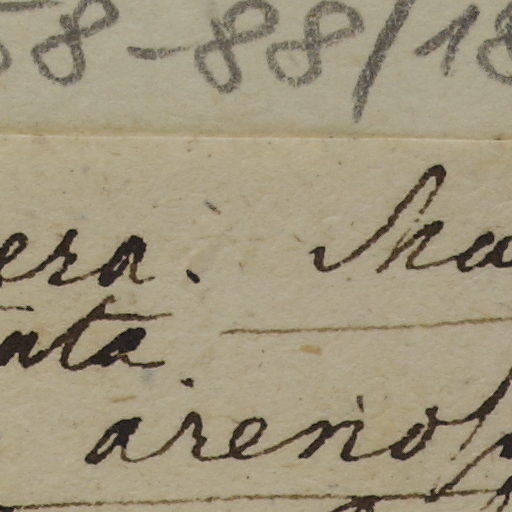 58-88/18
era. Ma
nta
arenos